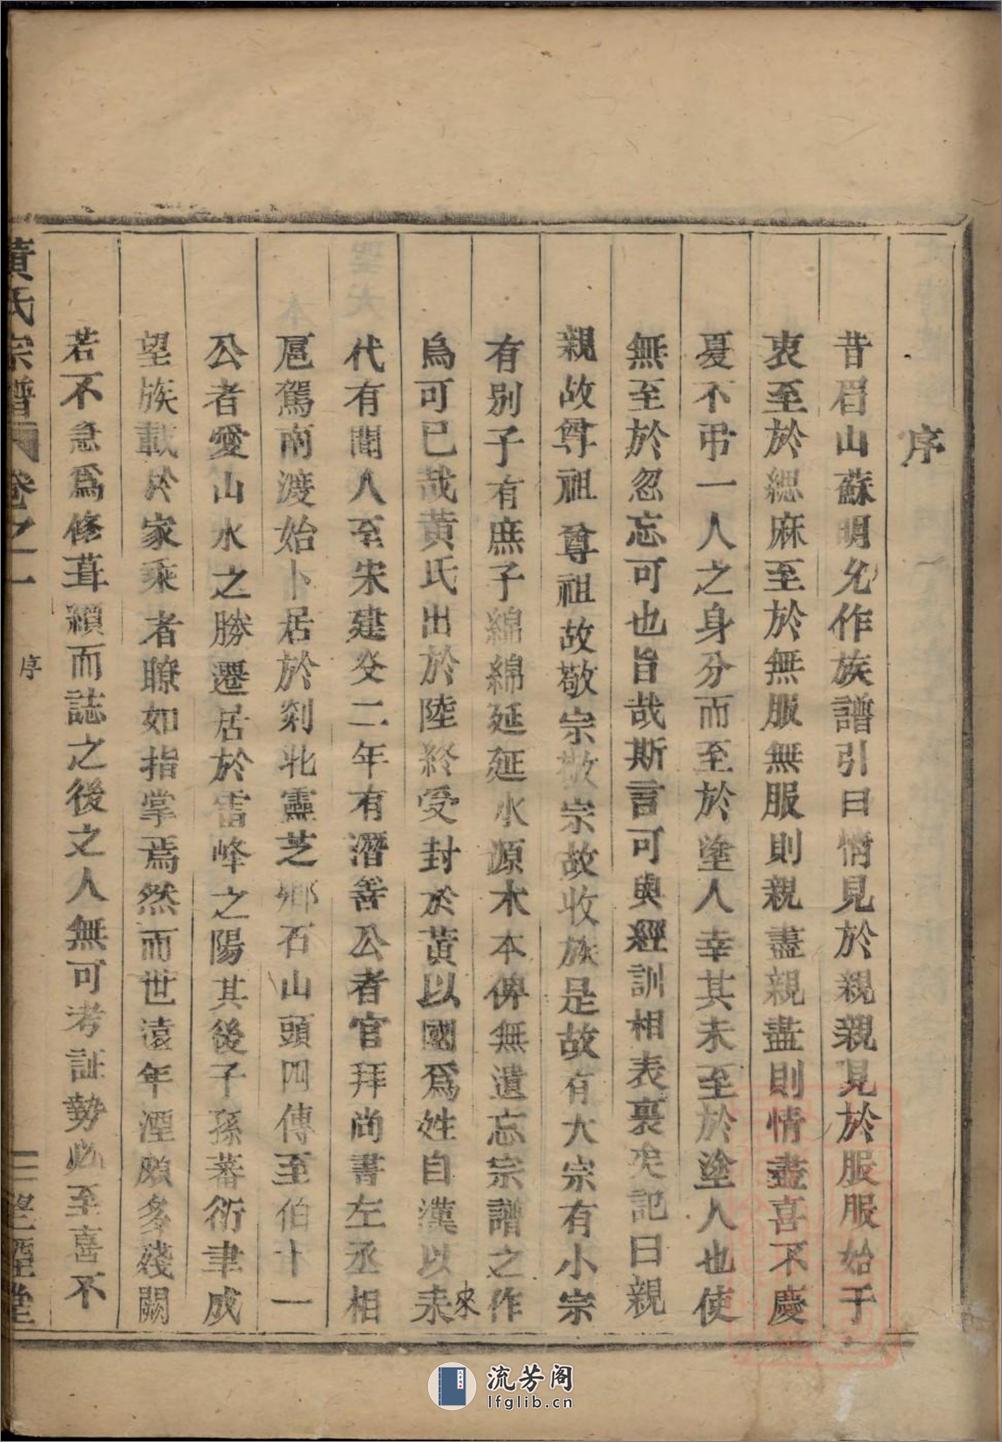 序
昔眉山蘇明允作族譜引曰情見於親親見於服服始于
衷至於緦麻至於無服無服則親盡親盡則情盡喜不慶
憂不弔一人之身分而至於塗人幸其未至於塗人也使
無至於忽忘可也旨哉斯言可與經訓相表裏矣記曰親
親故尊祖尊祖故敬宗敬宗故收族是故有大宗有小宗
有別子有庶子綿綿延延水源木本俾無遺忘宗譜之作
烏可已哉黃氏出於陸終受封於黃以國爲姓自漢以来
來
代有聞人至宋建炎二年有潛善公者官拜尚書左丞相
扈駕南渡始卜居於剡北靈芝鄉石山頭四傳至伯十一
公者愛山水之勝遷居於雷峰之陽其後子孫蕃衍聿成
望族載於家乘者瞭如指掌焉然而世遠年湮頗多殘闕
若不急爲修葺續而誌之後之人無可考証勢必至喜不
黃氏宗譜 卷之一
序
望聖堂
流芳阁
lfglib.cn